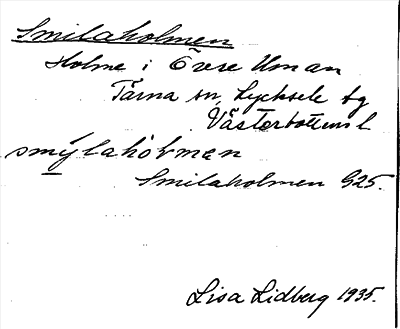 Smilaholmen
Holme i Övre Uman
Tärna sn, Lycksele tg
Västerbottens l
smýlahòlmen
Smilaholmen G25.
Lisa Lidberg 1935.